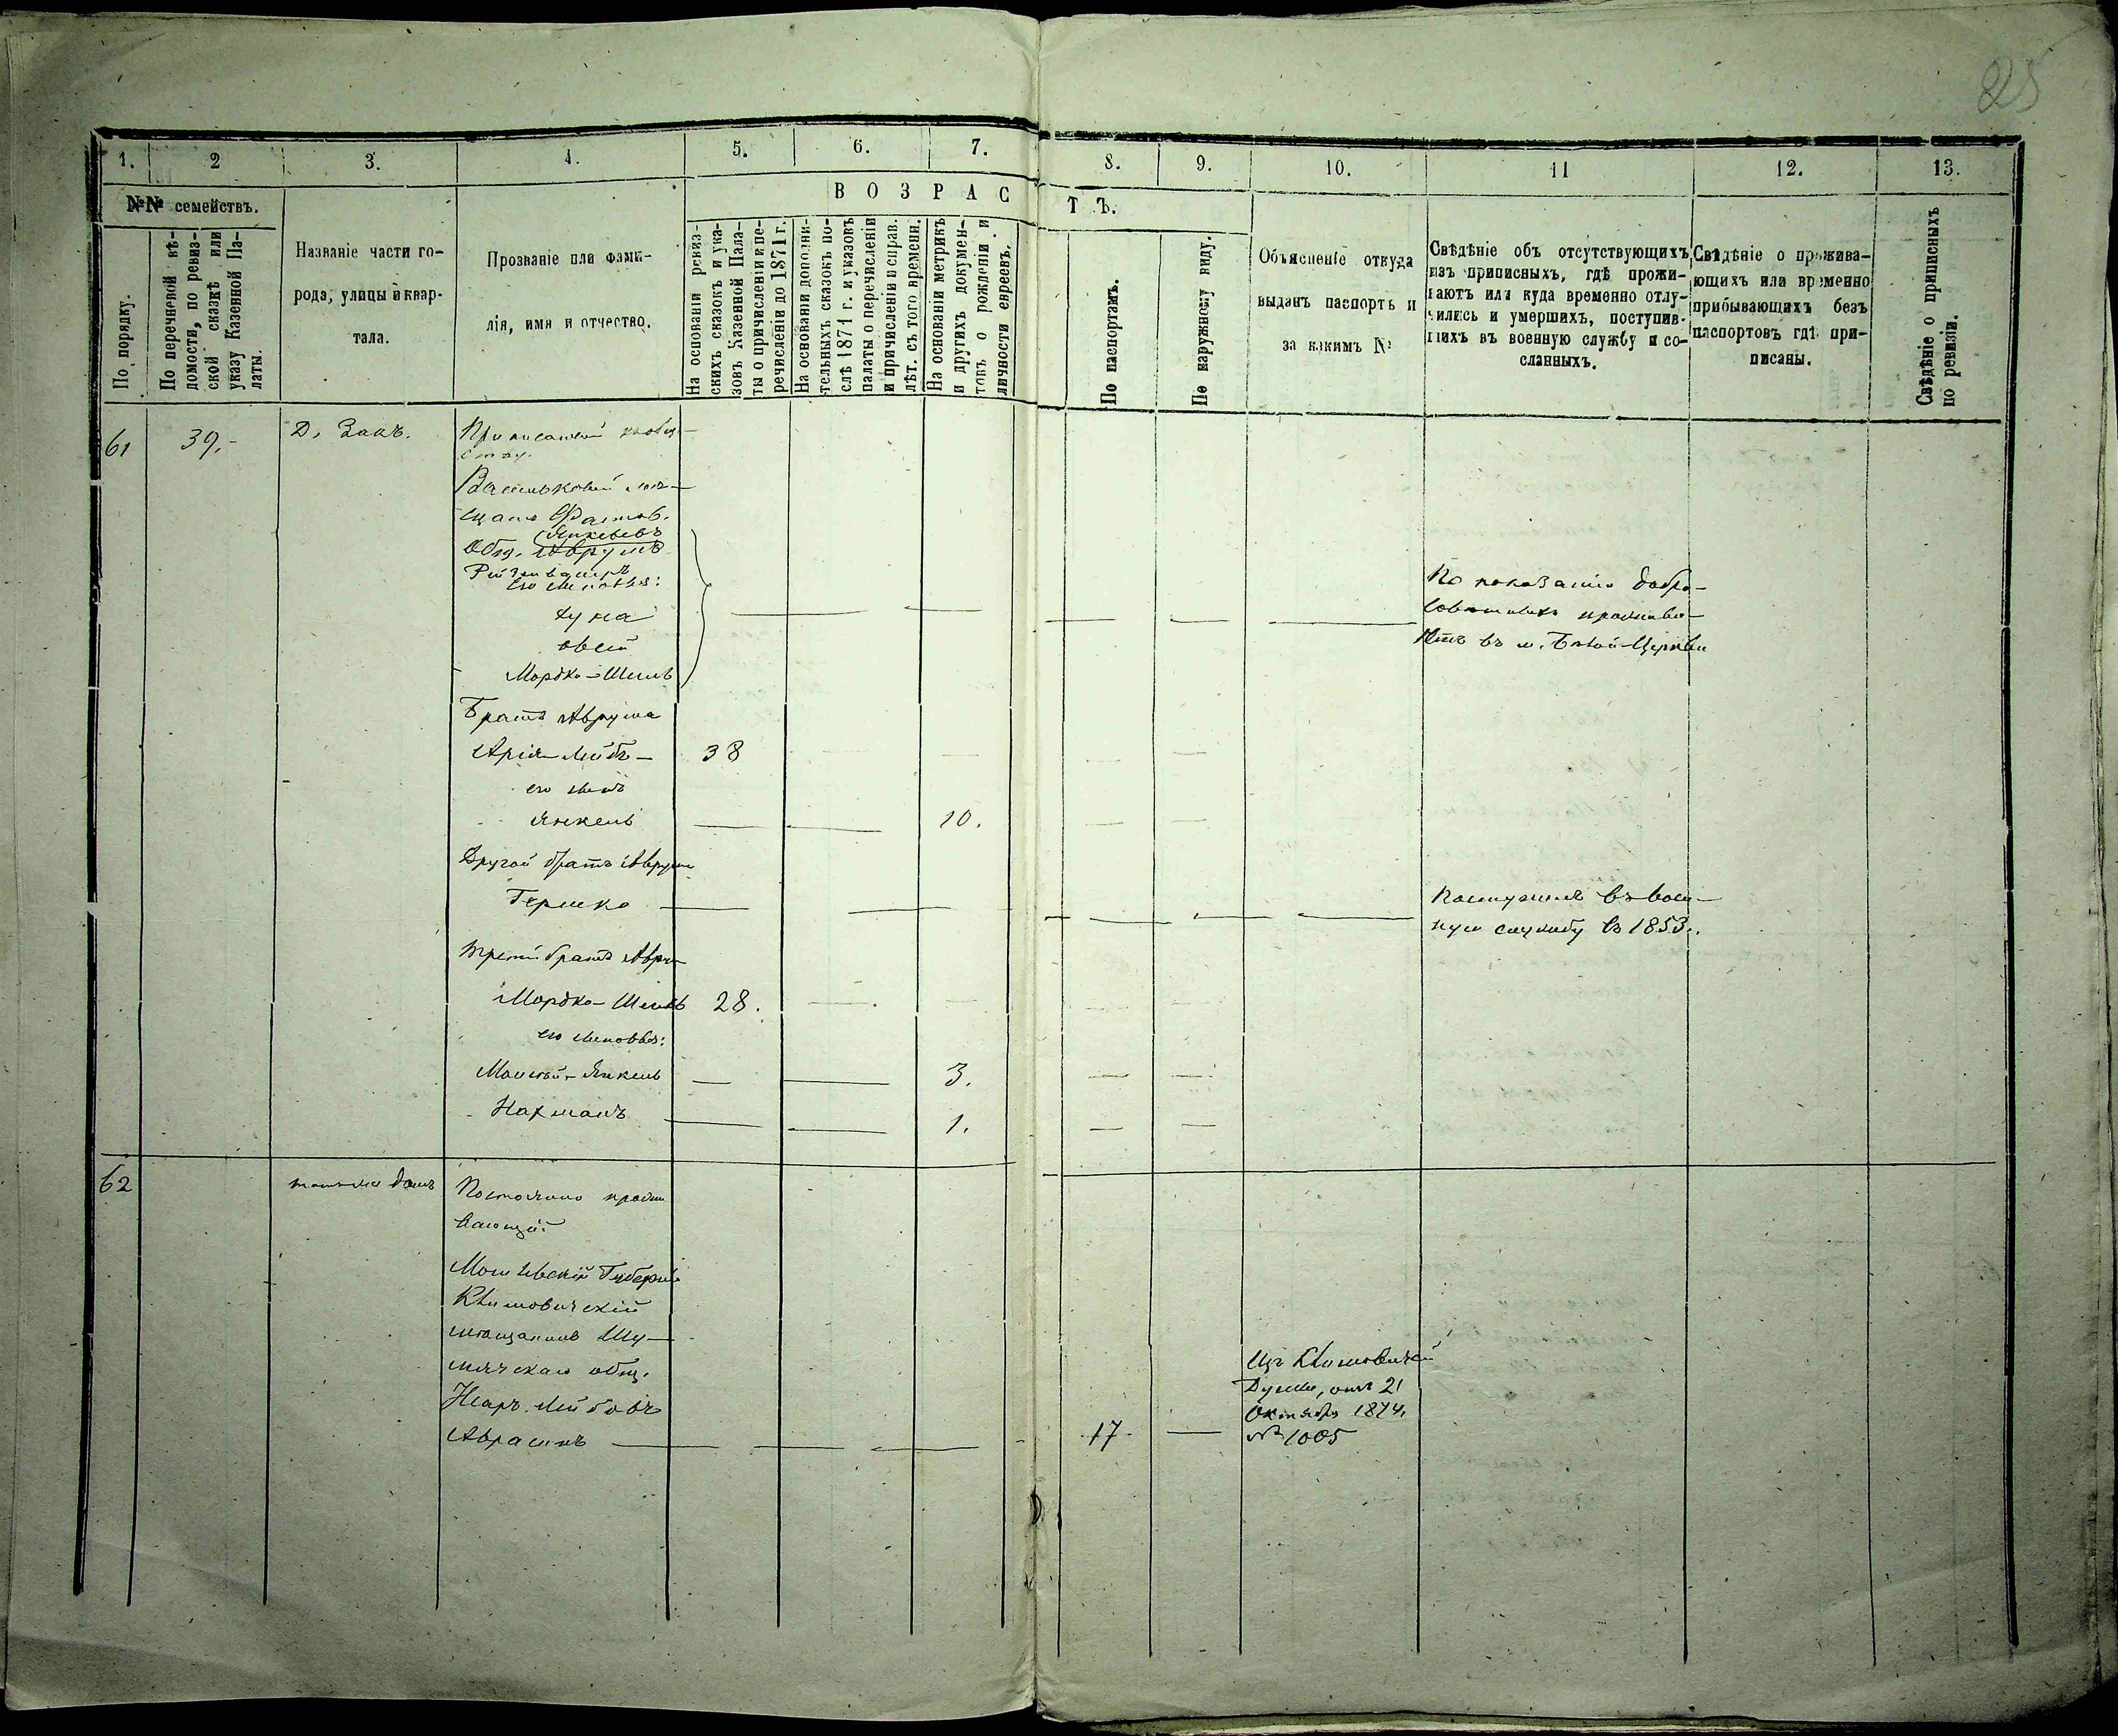 25
1. 2 3. 4. 5. 6. 7. 8. 9. 10. 11 12. 13.
№№ семействъ.
По порядку.
По перечневой вѣ-
домости, по ревиз-
ской сказкѣ или
указу Казенной Па-
латы.
Названіе части го-
рода, улицы и квар-
тала.
Прозваніе или фами-
лія, имя и отчество.
ВОЗРАСТЪ.
На основаніи ревиз-
скихъ сказокъ и ука-
зовъ Казенной Пала-
ты о причисленіи и пе-
речисленіи до 1871 г.
На основаніи дополни-
тельныхъ сказокъ по-
слѣ 1871 г. и указовъ
палаты о перечисленіи
и причисленіи и справ.
лѣт. съ того времени.
На основаніи метрикъ
и другихъ докумен-
товъ о рожденіи и
личности евреевъ.
По паспортамъ.
По наружному виду.
Объясненіе откуда
выданъ паспортъ и
за какимъ №
Свѣдѣніе объ отсутствующихъ
изъ приписныхъ, гдѣ прожи-
ваютъ или куда временно отлу-
чились и умершихъ, поступив-
шихъ въ военную службу и со-
сланныхъ.
Свѣдѣніе о прожива-
ющихъ или временно
прибывающихъ безъ
паспортовъ гдѣ при-
писаны.
Свѣдѣніе о приписныхъ
по ревизіи.
61 39.- Д. Закъ. Приписанный къ общ-
еству.
Васильковскій мѣ-
щан. Фастов.
Янкелевъ
Общ. Аврумъ
его сыновья:
Дуна
Овсей
Мордко-Шмиль
По показанію добро-
совѣстныхъ прожива-
етъ въ м. Бѣлой-Церкви
Братъ Аврума
Арія-Лейбъ - 38
его сынъ
Янкель 10.
Другой братъ Аврума
Гершко
Поступилъ въ воен-
ную службу въ 1853.
Третій братъ Авру-
Мордко-Шмиль 28.
его сыновья:
Мошко-Янкель 3.
Нахманъ 1.
62 домъ Постоянно прожи
вающій
Могилевской Губерніи
Климовичскій
мѣщанинъ Шу-
мячскаго общ.
Лейбовъ
Абрамъ 17
Изъ Климовичской
Думы, отъ 21
Октября 1874.
№ 1005